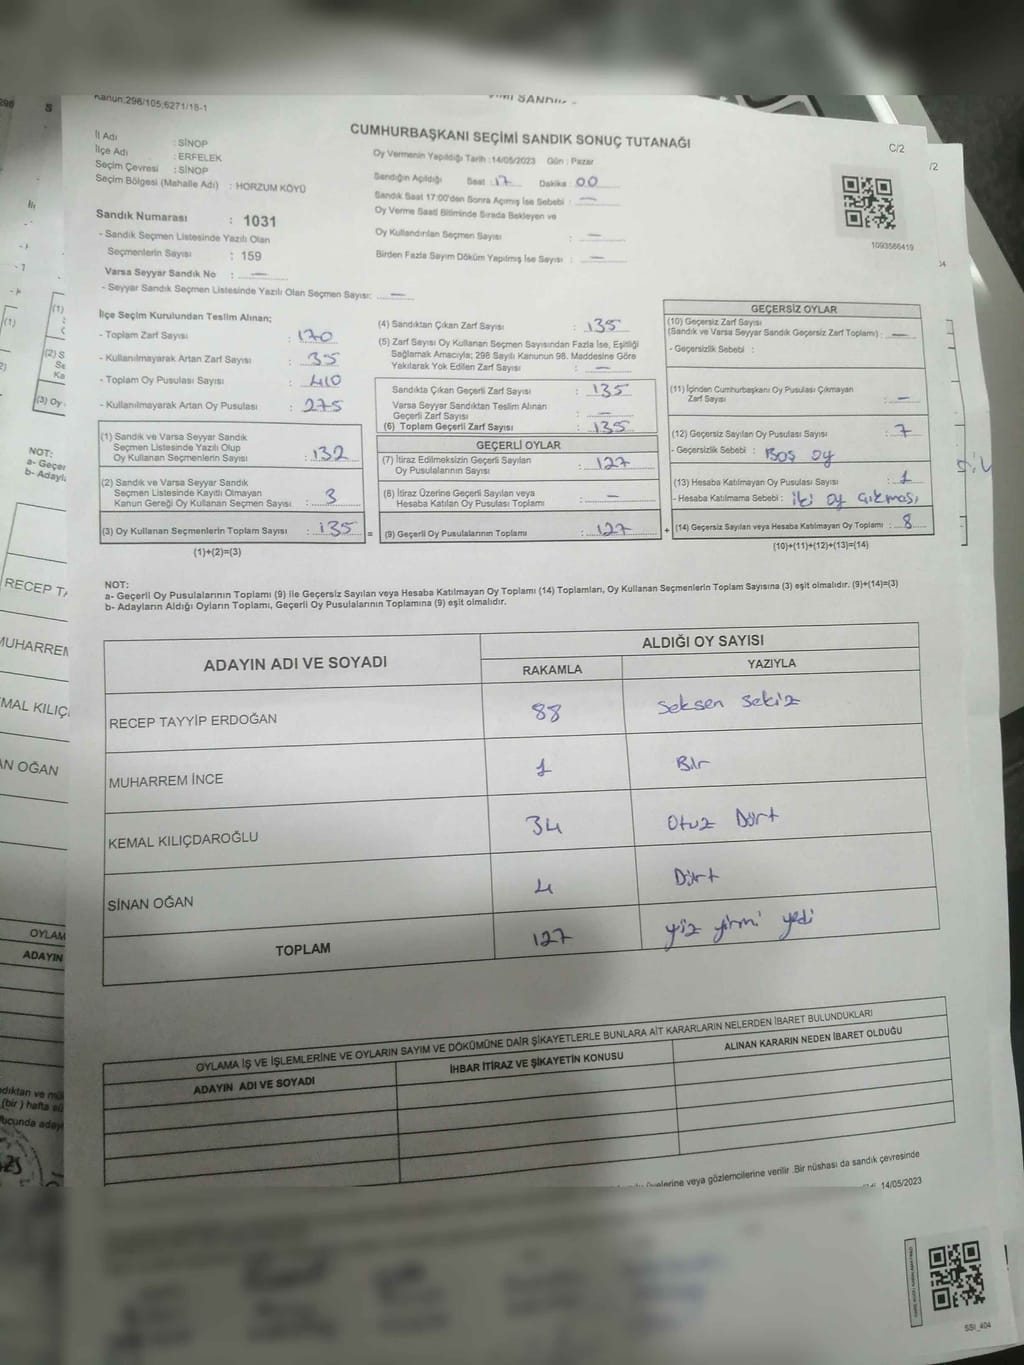 Kanun:298/105;6271/18-1
CUMHURBAŞKANI SEÇİMİ SANDIK SONUÇ TUTANAĞI
C/2
İl Adı : SİNOP
İlçe Adı : ERFELEK
Seçim Çevresi : SİNOP
Seçim Bölgesi (Mahalle Adı) : HORZUM KÖYÜ
Sandık Numarası : 1031
- Sandık Seçmen Listesinde Yazılı Olan
Seçmenlerin Sayısı : 159
Varsa Seyyar Sandık No : —
- Seyyar Sandık Seçmen Listesinde Yazılı Olan Seçmen Sayısı: —
Oy Vermenin Yapıldığı Tarih :14/05/2023 Gün : Pazar
Sandığın Açıldığı Saat : 17 Dakika : 00
Sandık Saat 17:00'den Sonra Açımış İse Sebebi : —
Oy Verme Saati Bitiminde Sırada Bekleyen ve
Oy Kullandırılan Seçmen Sayısı : —
Birden Fazla Sayım Döküm Yapılmış İse Sayısı : —
1093586419
İlçe Seçim Kurulundan Teslim Alınan;
- Toplam Zarf Sayısı : 170
- Kullanılmayarak Artan Zarf Sayısı : 35
- Toplam Oy Pusulası Sayısı : 410
- Kullanılmayarak Artan Oy Pusulası : 275
(1) Sandık ve Varsa Seyyar Sandık
Seçmen Listesinde Yazılı Olup
Oy Kullanan Seçmenlerin Sayısı : 132
(2) Sandık ve Varsa Seyyar Sandık
Seçmen Listesinde Kayıtlı Olmayan
Kanun Gereği Oy Kullanan Seçmen Sayısı : 3
(3) Oy Kullanan Seçmenlerin Toplam Sayısı : 135 =
(1)+(2)=(3)
(4) Sandıktan Çıkan Zarf Sayısı : 135
(5) Zarf Sayısı Oy Kullanan Seçmen Sayısından Fazla İse, Eşitliği
Sağlamak Amacıyla; 298 Sayılı Kanunun 98. Maddesine Göre
Yakılarak Yok Edilen Zarf Sayısı : —
Sandıkta Çıkan Geçerli Zarf Sayısı : 135
Varsa Seyyar Sandıktan Teslim Alınan
Geçerli Zarf Sayısı : —
(6) Toplam Geçerli Zarf Sayısı : 135
GEÇERLİ OYLAR
(7) İtiraz Edilmeksizin Geçerli Sayılan
Oy Pusulalarının Sayısı : 127
(8) İtiraz Üzerine Geçerli Sayılan veya
Hesaba Katılan Oy Pusulası Toplamı : —
(9) Geçerli Oy Pusulalarının Toplamı : 127 +
GEÇERSİZ OYLAR
(10) Geçersiz Zarf Sayısı
(Sandık ve Varsa Seyyar Sandık Geçersiz Zarf Toplamı) : —
- Geçersizlik Sebebi :
(11) İçinden Cumhurbaşkanı Oy Pusulası Çıkmayan
Zarf Sayısı : —
(12) Geçersiz Sayılan Oy Pusulası Sayısı : 7
- Geçersizlik Sebebi : Boş oy
(13) Hesaba Katılmayan Oy Pusulası Sayısı : 1
- Hesaba Katılmama Sebebi : iki oy çıkması
(14) Geçersiz Sayılan veya Hesaba Katılmayan Oy Toplamı : 8
(10)+(11)+(12)+(13)=(14)
NOT:
a- Geçerli Oy Pusulalarının Toplamı (9) ile Geçersiz Sayılan veya Hesaba Katılmayan Oy Toplamı (14) Toplamları, Oy Kullanan Seçmenlerin Toplam Sayısına (3) eşit olmalıdır. (9)+(14)=(3)
b- Adayların Aldığı Oyların Toplamı, Geçerli Oy Pusulalarının Toplamına (9) eşit olmalıdır.
ADAYIN ADI VE SOYADI
ALDIĞI OY SAYISI
RAKAMLA YAZIYLA
RECEP TAYYİP ERDOĞAN 88 seksen sekiz
MUHARREM İNCE 1 Bir
KEMAL KILIÇDAROĞLU 34 Otuz Dört
SİNAN OĞAN 4 Dört
TOPLAM 127 yüz yirmi yedi
OYLAMA İŞ VE İŞLEMLERİNE VE OYLARIN SAYIM VE DÖKÜMÜNE DAİR ŞİKAYETLERLE BUNLARA AİT KARARLARIN NELERDEN İBARET BULUNDUKLARI
ADAYIN ADI VE SOYADI İHBAR İTİRAZ VE ŞİKAYETİN KONUSU ALINAN KARARIN NEDEN İBARET OLDUĞU
veya gözlemcilerine verilir .Bir nüshası da sandık çevresinde
14/05/2023
SSI_404